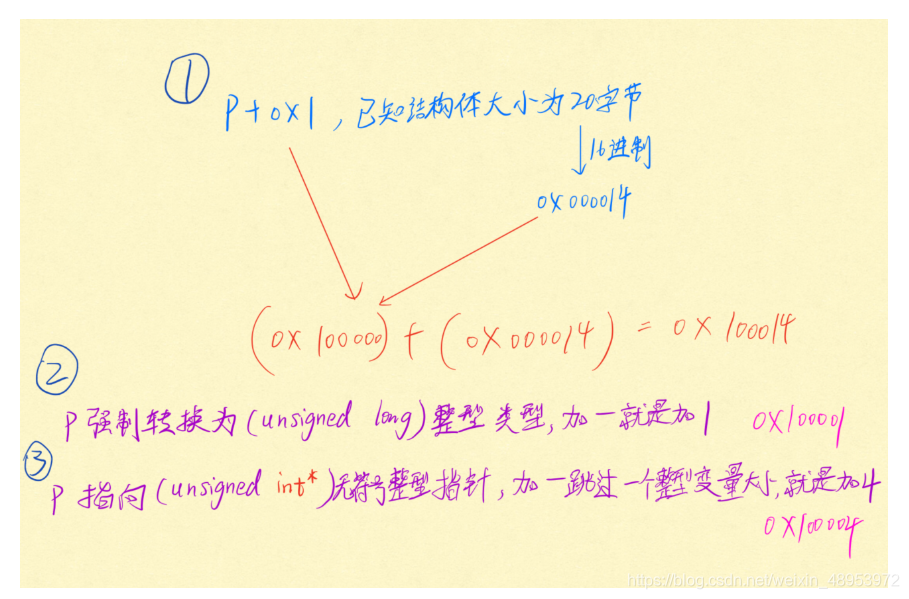 ①
P+0X1,已知结构体大小为20字节
16进制
0X000014
(0X100000)+(0X000014)=0X100014
②
P强制转换为(unsigned long)整型类型,加一就是加1 0X100001
③
P指向(unsigned int*)无符号整型指针,加一跳过一个整型变量大小,就是加4
0X100004
https://blog.csdn.net/weixin_48953972